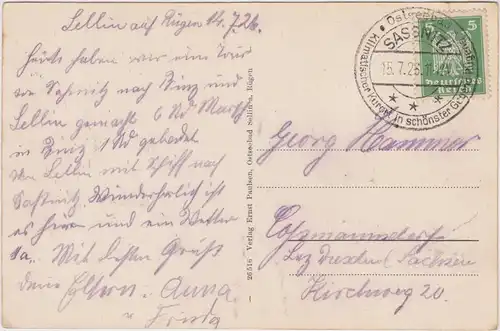 Sellin auf Rügen 14.7.26.
Heute haben wir eine Tour
von Saßnitz nach Binz und
Sellin gemacht 6 Std Marsch
in Binz 1 Std gebadet
von Sellin mit Schiff nach
Saßnitz. Wunderherrlich ist
es hier und ein Wetter
Ia. Mit besten Gruß
deine Eltern. Anna
u Frieda
26516 - Verlag Ernst Paulsen, Ostseebad Sellin a. Rügen
Ostseebad
SASSNITZ
15.7.26
Klimatischer Kurort in schönster
5
Deutsches
Reich
Georg Hammer
Coßmannsdorf
Bez Dresden Sachsen
Kirchweg 20.